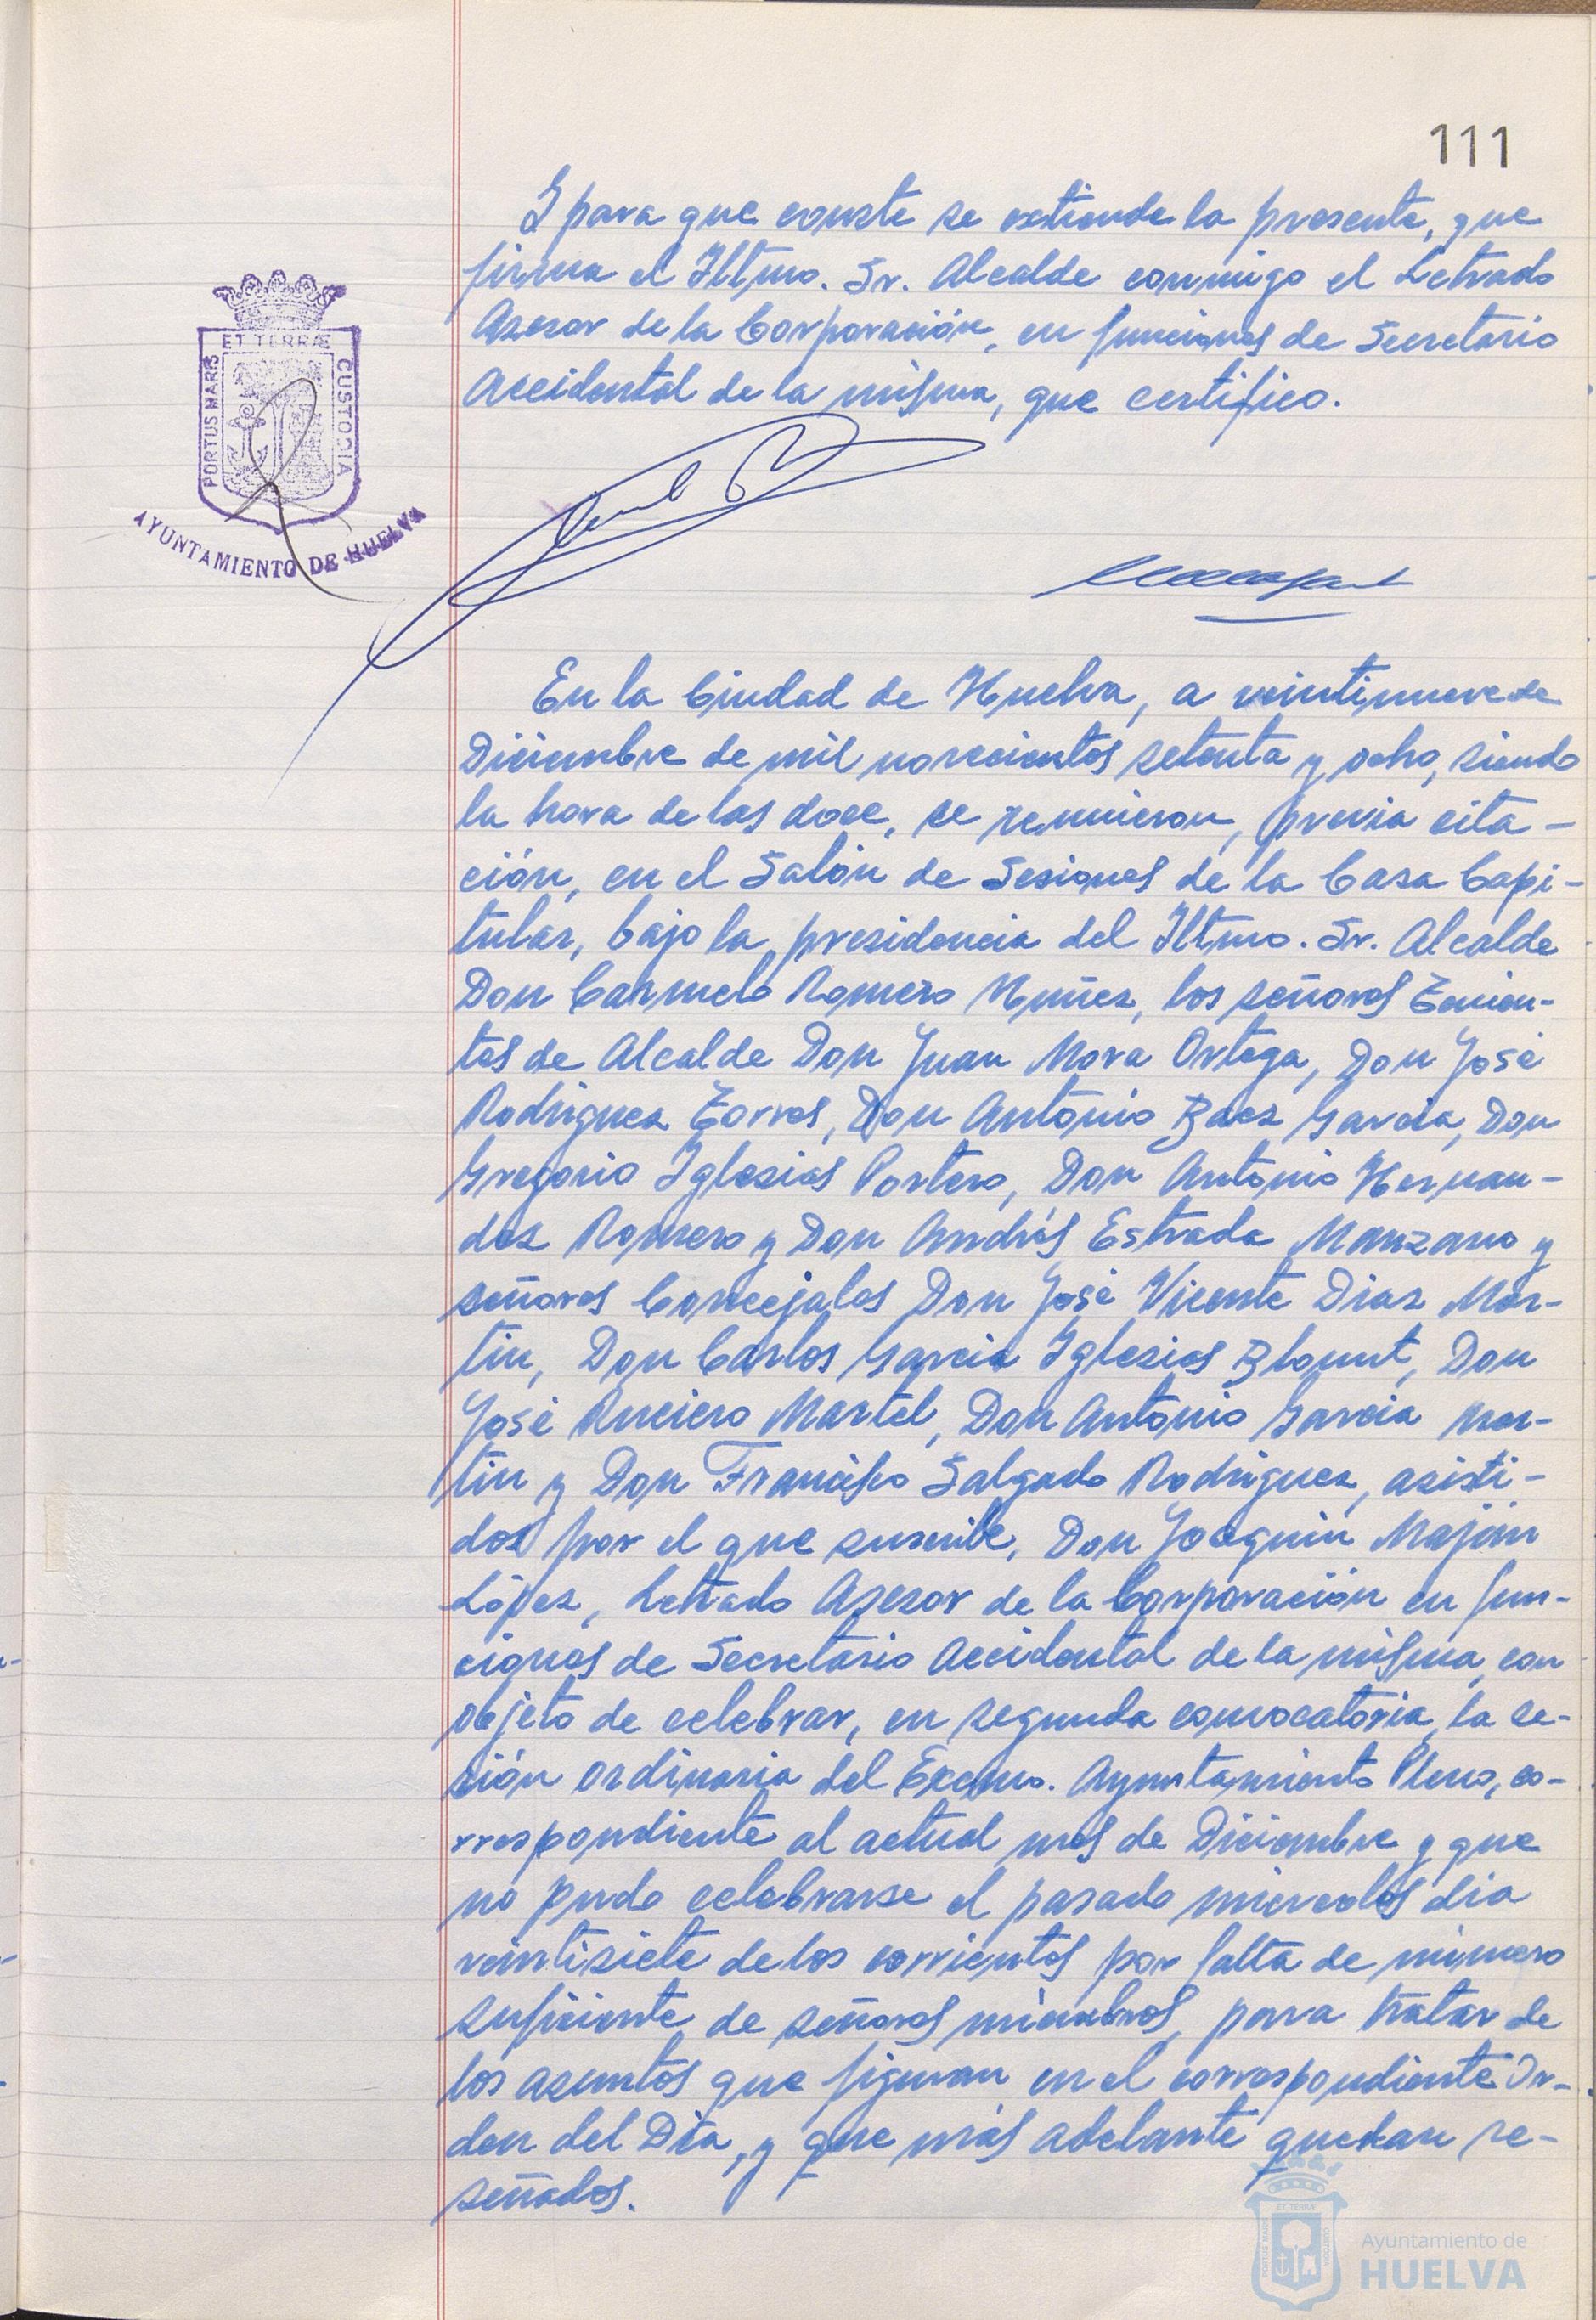 111
Y para que conste se extiende la presente, que
firma el Iltmo. Sr. Alcalde conmigo el Letrado
Asesor de la Corporación, en funciones de Secretario
Accidental de la misma, que certifico.
ET TERRÆ
PORTUS MARIS
CUSTODIA
AYUNTAMIENTO DE HUELVA
En la Ciudad de Huelva, a veintinueve de
Diciembre de mil novecientos setenta y ocho, siendo
la hora de las doce, se reunieron, previa cita-
ción, en el Salón de Sesiones de la Casa Capi-
tular, bajo la presidencia del Iltmo. Sr. Alcalde
Don Carmelo Romero Nuñez, los señores Tenien-
tes de Alcalde Don Juan Mora Ortega, Don José
Rodriguez Torres, Don Antonio Baez Garcia, Don
Gregorio Iglesias Portero, Don Antonio Hernan-
dez Romero y Don Andrés Estrada Manzano y
señores Concejales Don José Vicente Diaz Mar-
tin, Don Carlos Garcia Iglesias Blount, Don
José Anciero Martel, Don Antonio Garcia Mar-
tin y Don Francisco Salgado Rodriguez, asisti-
dos por el que suscribe, Don Joaquin Majón
López, Letrado Asesor de la Corporación en fun-
ciones de Secretario Accidental de la misma, con
objeto de celebrar, en segunda convocatoria, la se-
sión ordinaria del Excmo. Ayuntamiento Pleno, co-
rrespondiente al actual mes de Diciembre y que
no pudo celebrarse el pasado miercoles dia
veintisiete de los corrientes por falta de número
suficiente de señores miembros, para tratar de
los asuntos que figuran en el correspondiente Or-
den del Dia, y que más adelante quedan re-
señados.
Ayuntamiento de
HUELVA